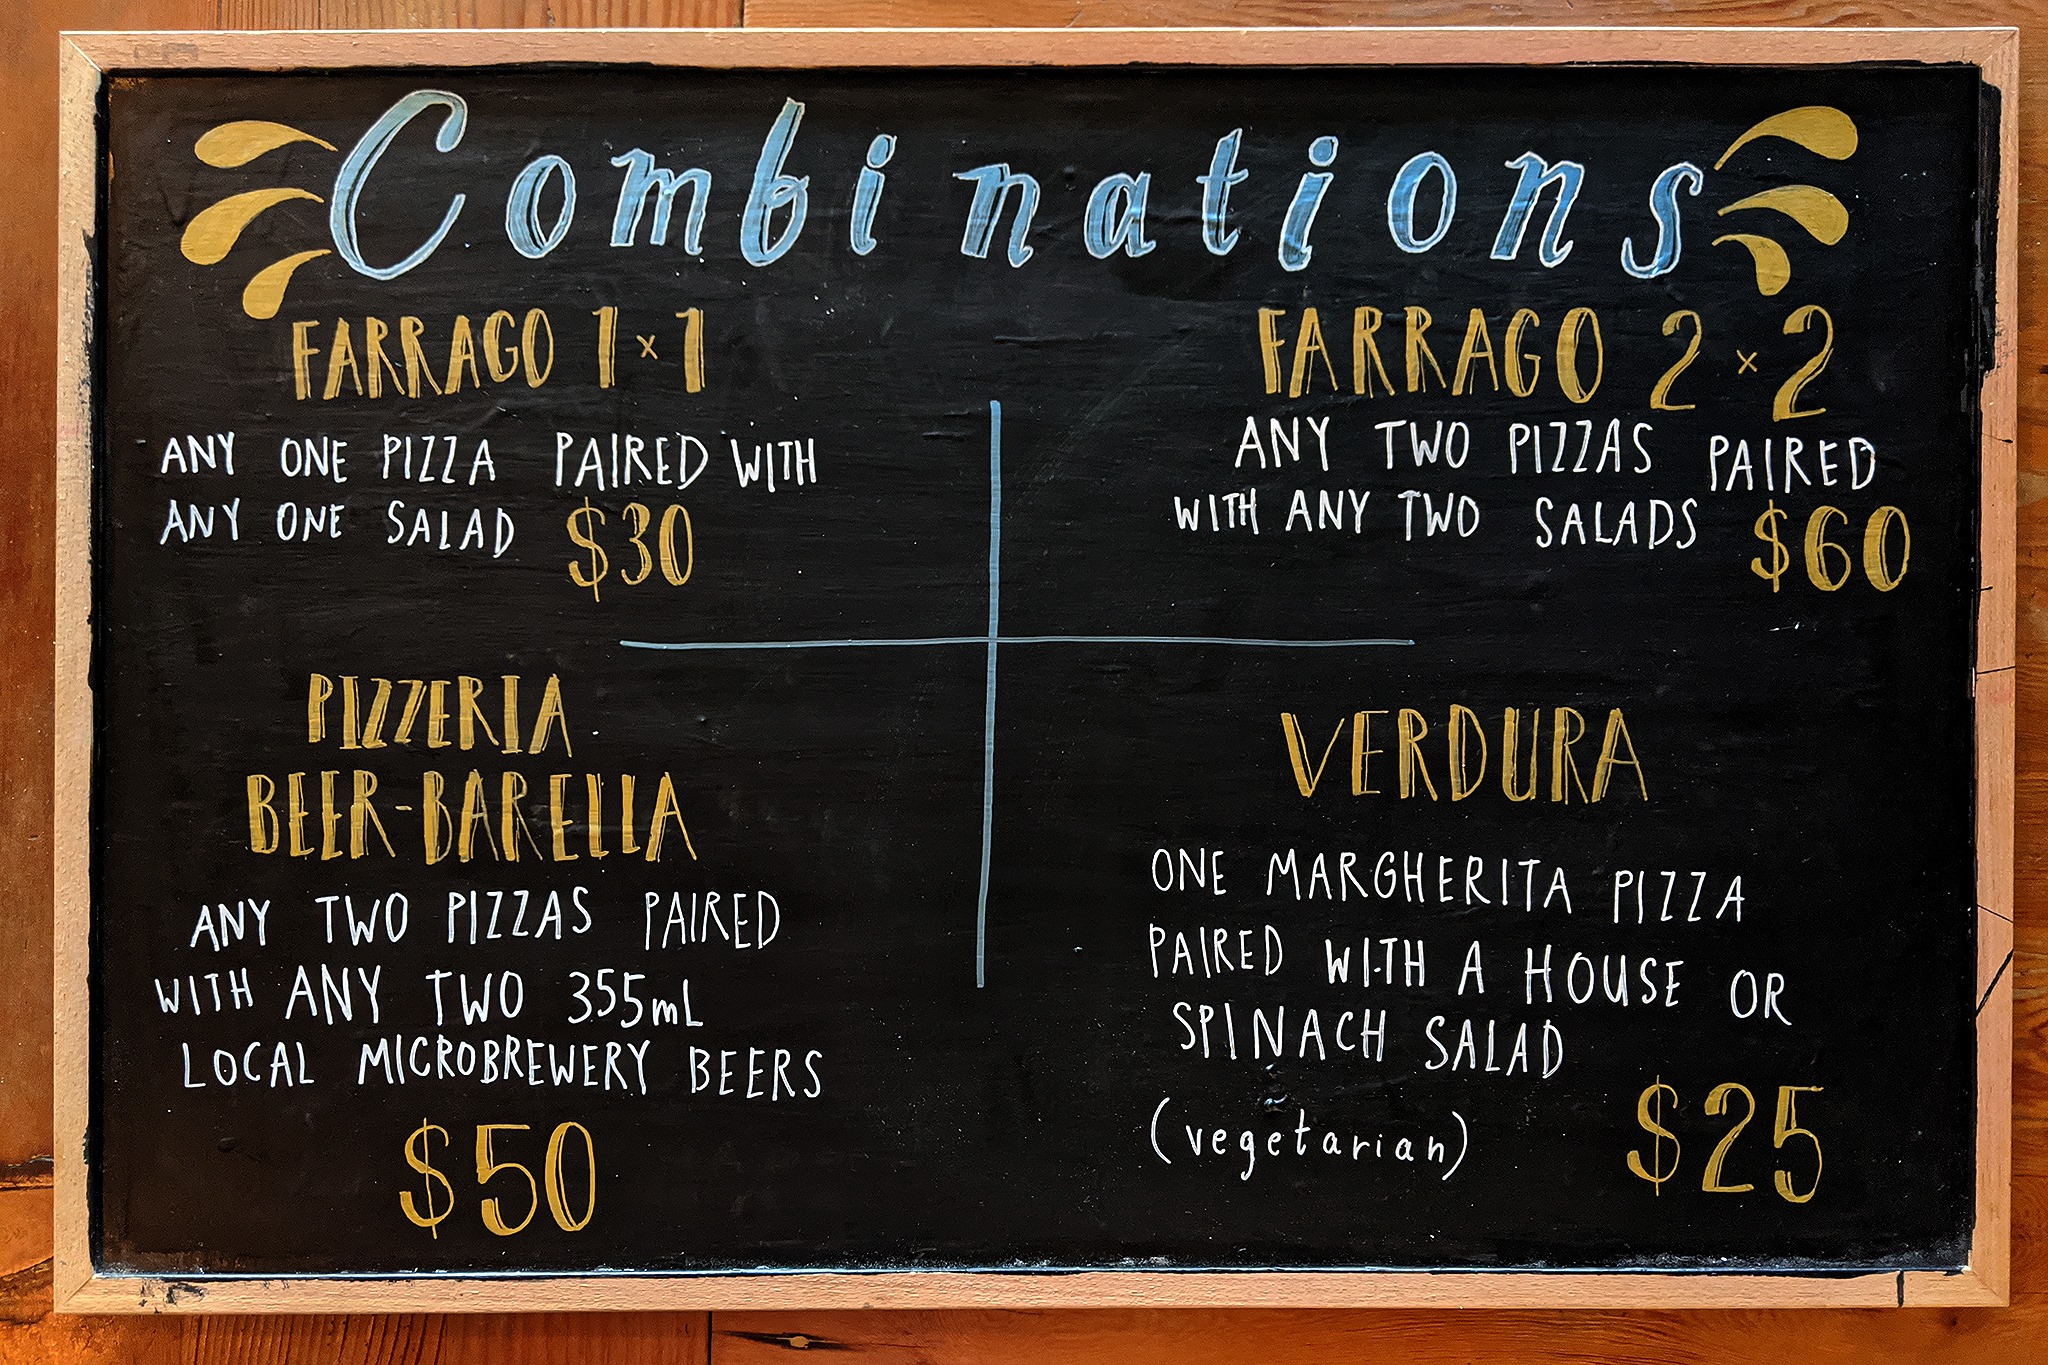 Combinations
FARRAGO 1 x 1
ANY ONE PIZZA PAIRED WITH
ANY ONE SALAD $30
FARRAGO 2 x 2
ANY TWO PIZZAS PAIRED
WITH ANY TWO SALADS $60
PIZZERIA
BEER-BARELLA
ANY TWO PIZZAS PAIRED
WITH ANY TWO 355mL
LOCAL MICROBREWERY BEERS
$50
VERDURA
ONE MARGHERITA PIZZA
PAIRED WITH A HOUSE OR
SPINACH SALAD
(vegetarian) $25